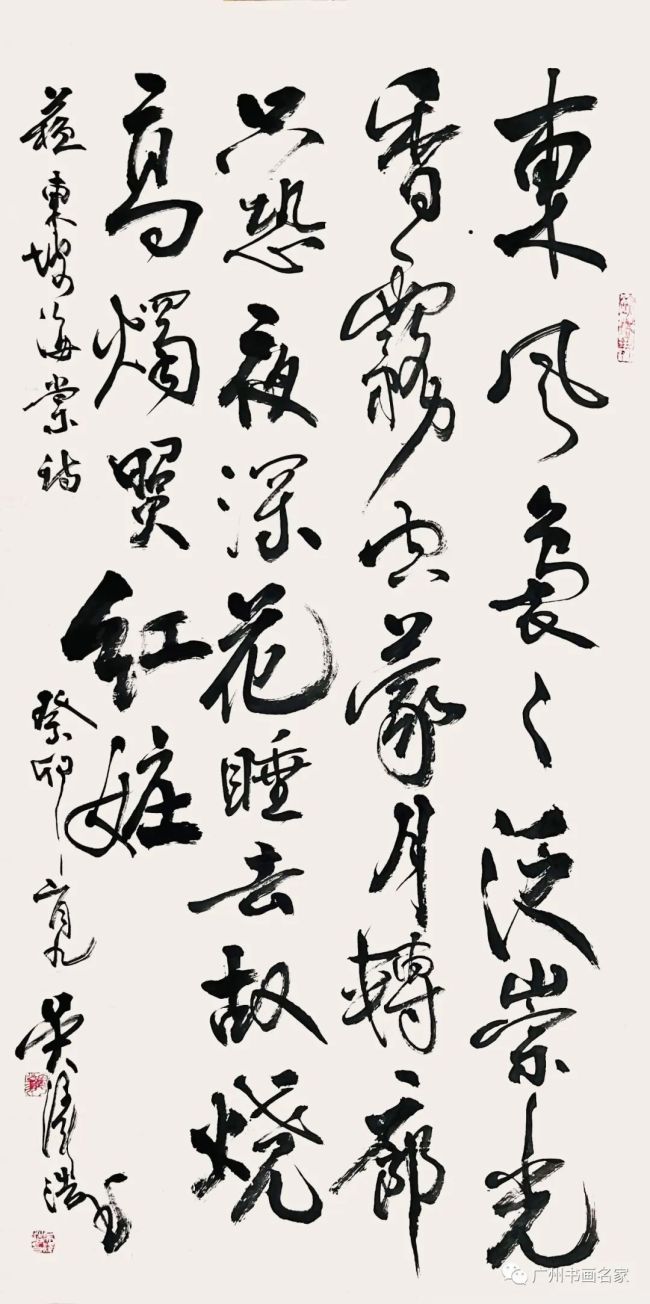 東風裊〻泛崇光
香霧空蒙月轉廊
只恐夜深花睡去故烧
高燭照紅妝
蘇東坡海棠詩 癸卯 吳澤浩書
广州书画名家